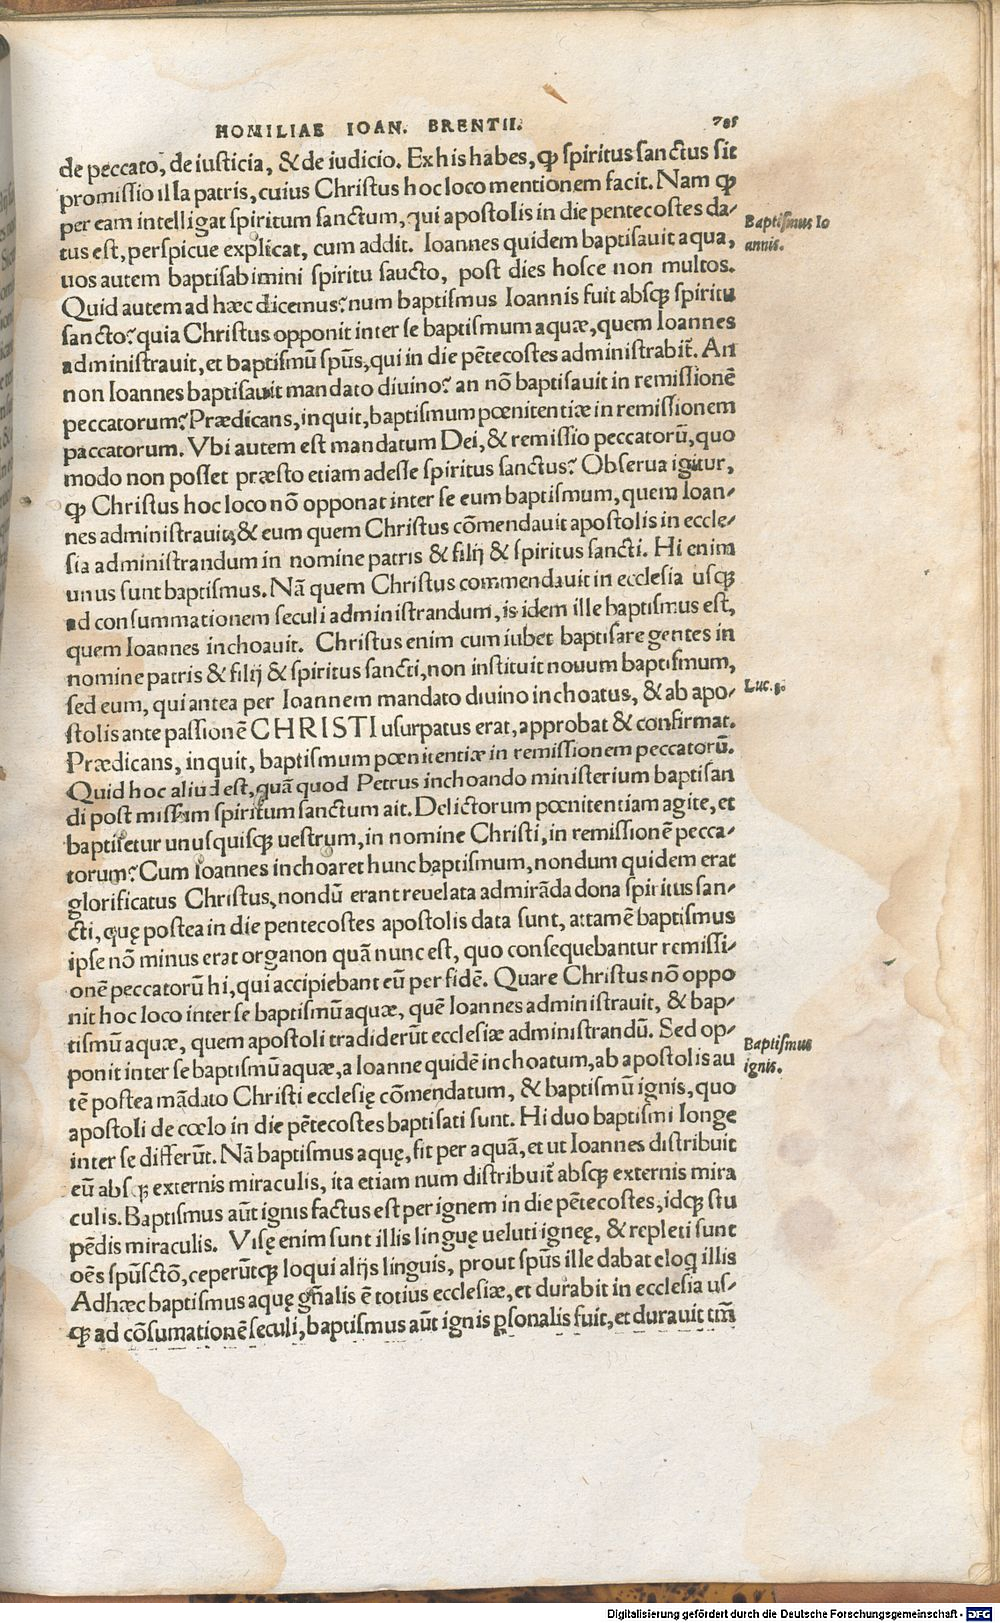 HOMILIAE IOAN. BRENTII. 785
de peccato, de iusticia, & de iudicio. Ex his habes, ꝙ spiritus sanctus sit
promissio illa patris, cuius Christus hoc loco mentionem facit. Nam ꝙ
per eam intelligat spiritum sanctum, qui apostolis in die pentecostes da-
tus est, perspicue explicat, cum addit. Ioannes quidem baptisauit aqua,
uos autem baptisabimini spiritu saucto, post dies hosce non multos.
Baptismus Io
annis.
Quid autem ad hæc dicemus? num baptismus Ioannis fuit absqꝫ spiritu
sancto? quia Christus opponit inter se baptismum aquæ, quem Ioannes
administrauit, et baptismū spūs, qui in die pētecostes administrabit̃. An
non Ioannes baptisauit mandato diuino? an nō baptisauit in remissionē
peccatorum? Prædicans, inquit, baptismum pœnitentiæ in remissionem
paccatorum. Vbi autem est mandatum Dei, & remissio peccatorū, quo
modo non posset præsto etiam adesse spiritus sanctus? Obserua igitur,
ꝙ Christus hoc loco nō opponat inter se eum baptismum, quem Ioan-
nes administrauit, & eum quem Christus cōmendauit apostolis in eccle-
sia administrandum in nomine patris & filij & spiritus sancti. Hi enim
unus sunt baptismus. Nā quem Christus commendauit in ecclesia usqꝫ
ad consummationem seculi administrandum, is idem ille baptismus est,
quem Ioannes inchoauit. Christus enim cum iubet baptisare gentes in
nomine patris & filij & spiritus sancti, non instituit nouum baptismum,
sed eum, qui antea per Ioannem mandato diuino inchoatus, & ab apo-
Luc.
stolis ante passionē CHRISTI usurpatus erat, approbat & confirmat.
Prædicans, inquit, baptismum pœnitentiæ in remissionem peccatorū.
Quid hoc aliud est, quā quod Petrus inchoando ministerium baptisan
di post missum spiritum sanctum ait. Delictorum pœnitentiam agite, et
baptisetur unusquisqꝫ uestrum, in nomine Christi, in remissionē pecca-
torum? Cum Ioannes inchoaret hunc baptismum, nondum quidem erat
glorificatus Christus, nondū erant reuelata admirāda dona spiritus san-
cti, quę postea in die pentecostes apostolis data sunt, attamē baptismus
ipse nō minus erat organon quā nunc est, quo consequebantur remissi-
onē peccatorū hi, qui accipiebant eū per fidē. Quare Christus nō oppo
nit hoc loco inter se baptismū aquæ, quē Ioannes administrauit, & bap-
tismū aquæ, quem apostoli tradiderūt ecclesiæ administrandū. Sed op-
Baptismus
ignis.
ponit inter se baptismū aquæ, a Ioanne quidē inchoatum, ab apostolis au
tē postea mādato Christi ecclesię cōmendatum, & baptismū ignis, quo
apostoli de cœlo in die pētecostes baptisati sunt. Hi duo baptismi longe
inter se differūt. Nā baptismus aquę, fit per aquā, et ut Ioannes distribuit
eū absqꝫ externis miraculis, ita etiam num distribuit̃ absqꝫ externis mira
culis. Baptismus aūt ignis factus est per ignem in die pētecostes, idqꝫ stu
pēdis miraculis. Visę enim sunt illis linguę ueluti igneę, & repleti sunt
oēs spūsctō, ceperūtqꝫ loqui alijs linguis, prout spūs ille dabat eloq illis
Adhæc baptismus aquę gñalis ē totius ecclesiæ, et durabit in ecclesia us-
qꝫ ad cōsumationē seculi, baptismus aūt ignis ꝑsonalis fuit, et durauit tm̄
Digitalisierung gefördert durch die Deutsche Forschungsgemeinschaft - DFG